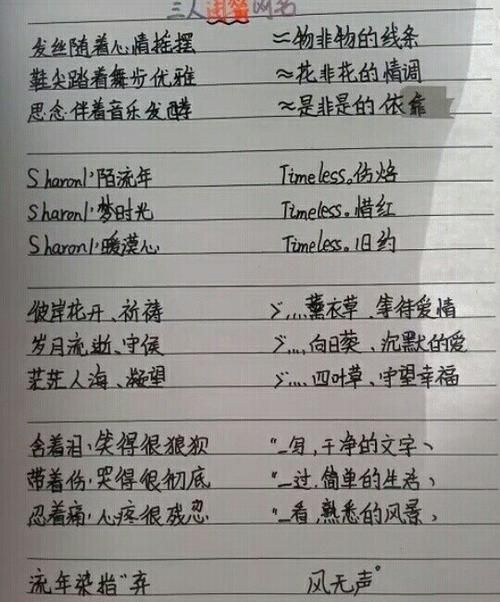 三人闺蜜网名
发丝随着心情摇摆 ≈物非物的线条
鞋尖踏着舞步优雅 ≈花非花的情调
思念伴着音乐发酵 ≈是非是的依靠
Sharonl·陌流年 Timeless。伤焰
Sharonl·梦时光 Timeless。惜红
Sharonl·暖漠心 Timeless。旧约
彼岸花开、祈祷 ゞ....薰衣草、等待爱情
岁月流逝、守侯 ゞ....向日葵、沉默的爱
茫茫人海、凝望 ゞ....四叶草、守望幸福
含着泪,笑得很狼狈 “_写,干净的文字、
带着伤,哭得很彻底 “_过,简单的生活、
忍着痛,心疼很残忍 “_看,熟悉的风景、
流年染指“弃 风无声°